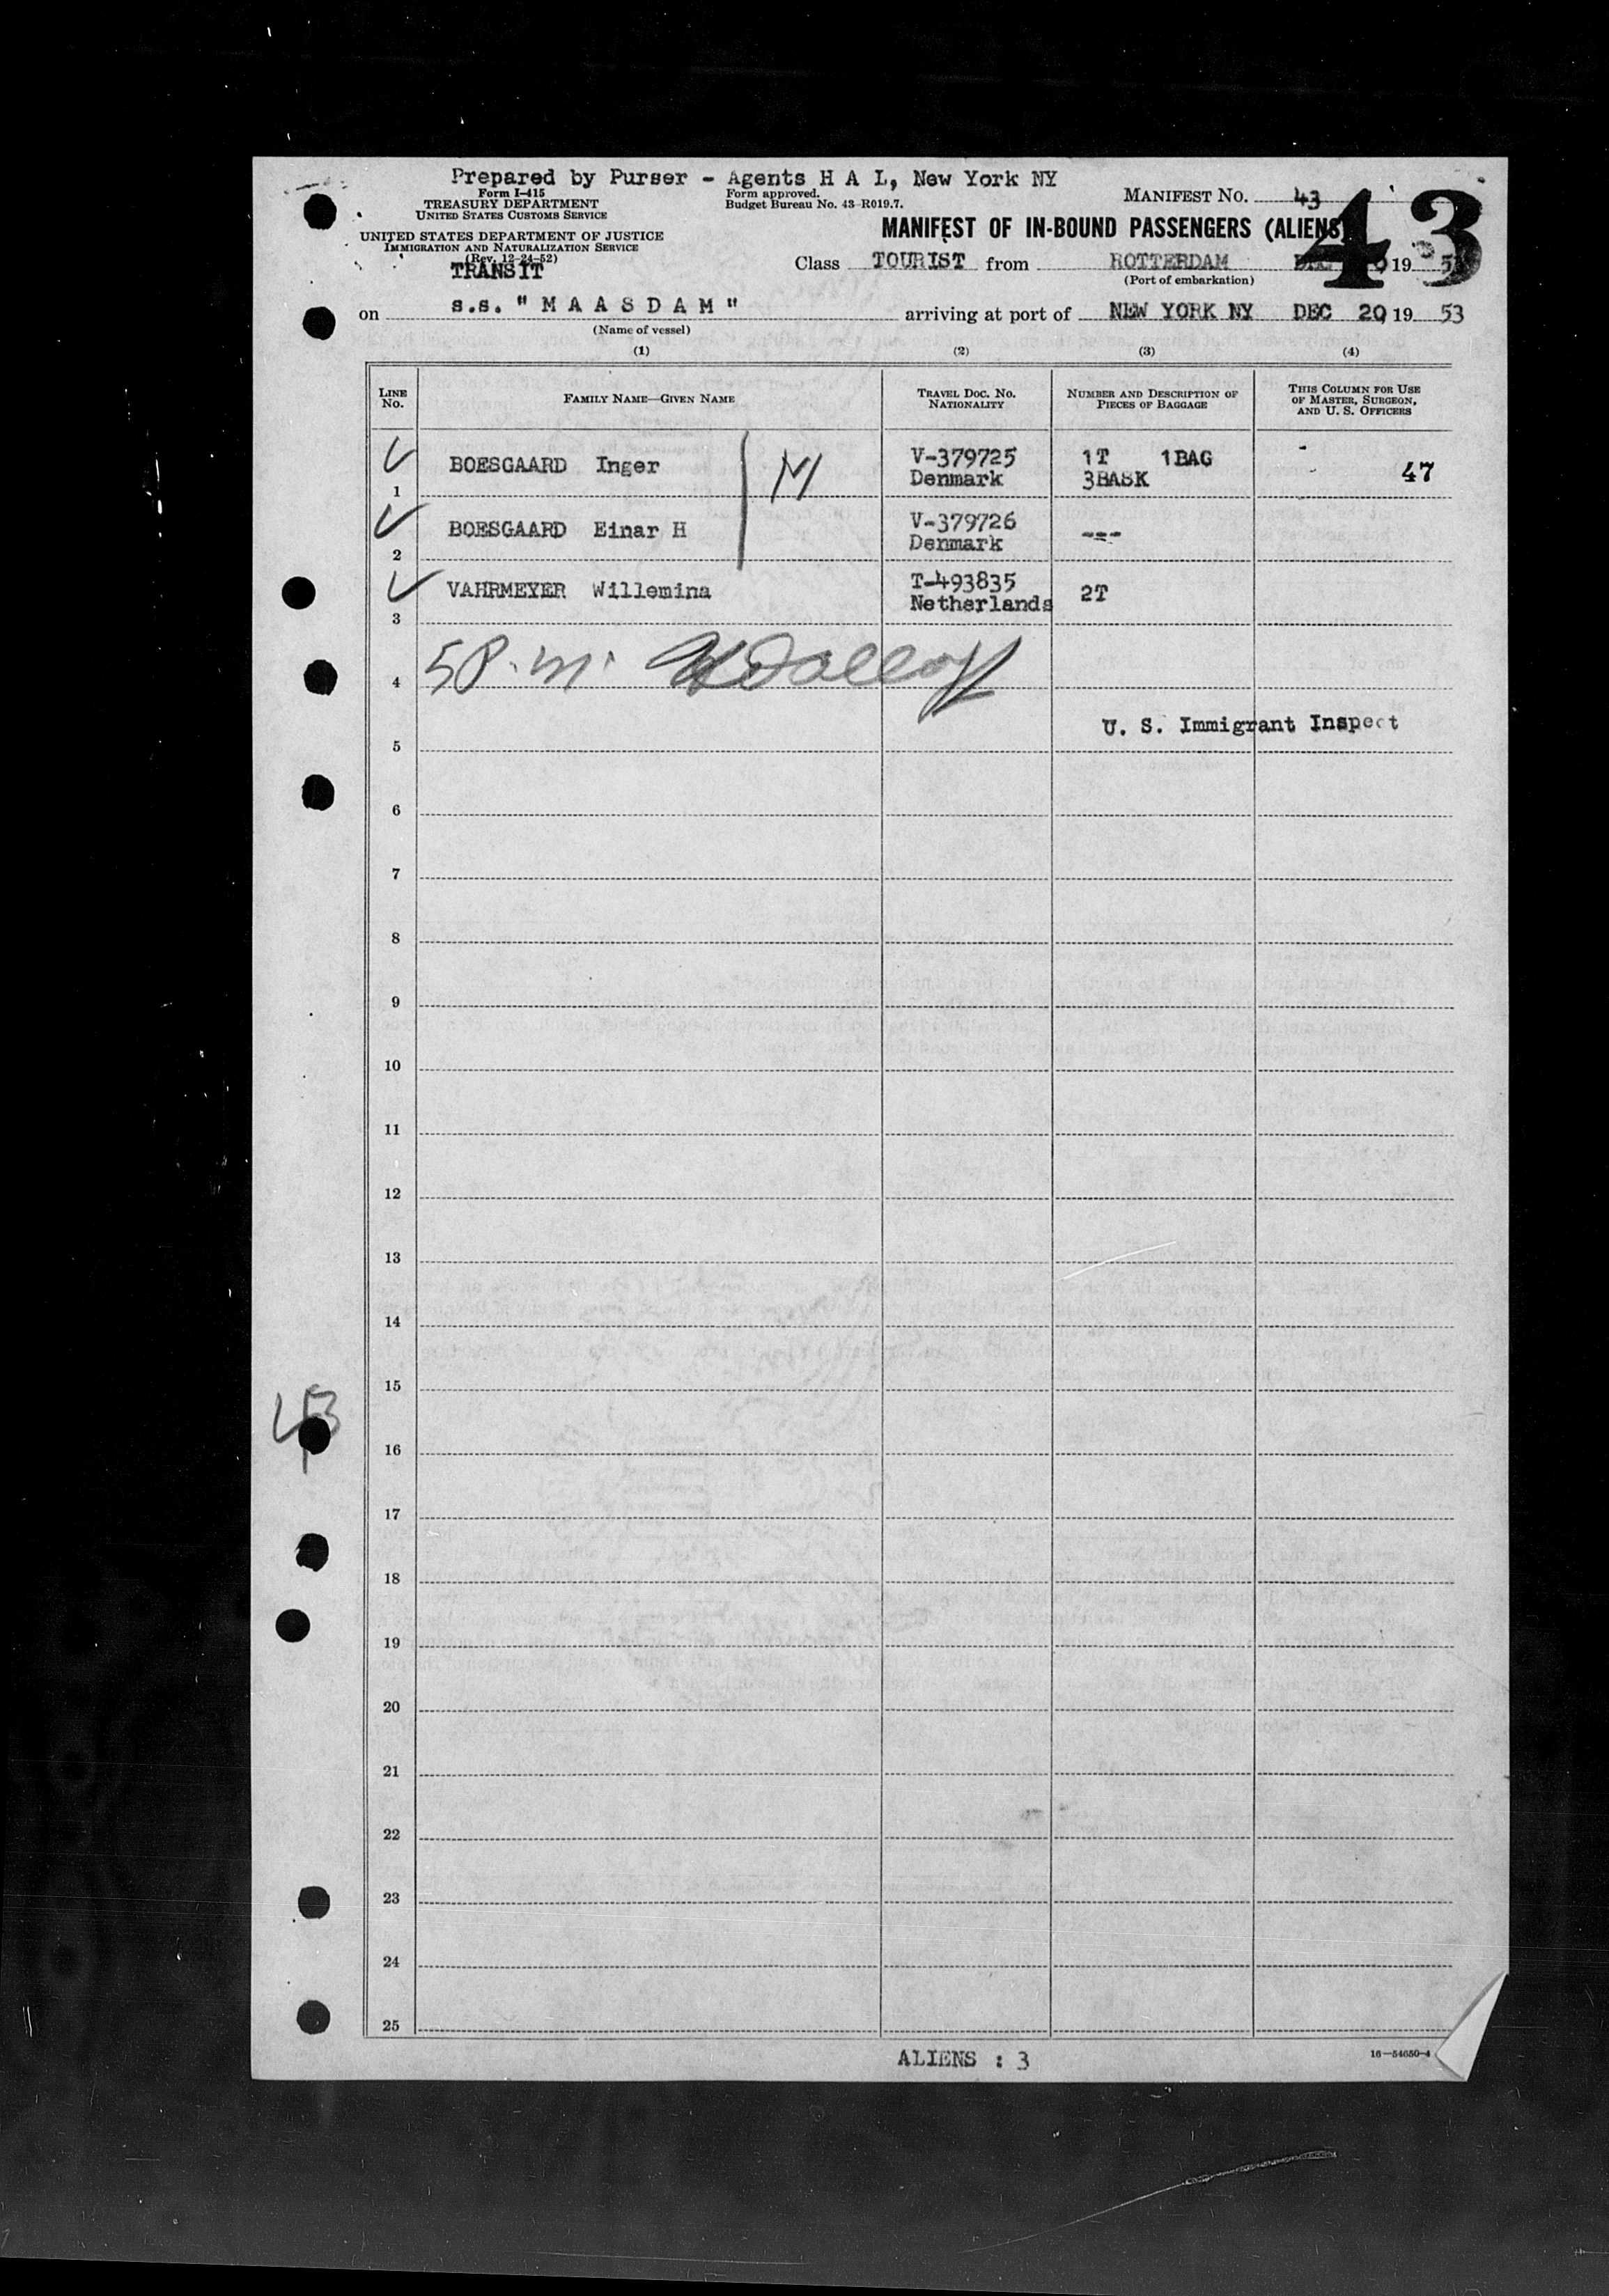 Prepared by Purser - Agents H A L, New York NY
Form I-415
TREASURY DEPARTMENT
UNITED STATES CUSTOMS SERVICE
Form approved.
Budget Bureau No. 43-R019.7.
MANIFEST No. 43
43
UNITED STATES DEPARTMENT OF JUSTICE
IMMIGRATION AND NATURALIZATION SERVICE
(Rev. 12-24-52)
TRANSIT
MANIFEST OF IN-BOUND PASSENGERS (ALIENS)
Class TOURIST from ROTTERDAM 19 53
(Port of embarkation)
on s.s. " M A A S D A M " arriving at port of NEW YORK NY DEC 20 19 53
(Name of vessel)
(1) (2) (3) (4)
LINE No.
FAMILY NAME—GIVEN NAME
TRAVEL DOC. NO. NATIONALITY
NUMBER AND DESCRIPTION OF PIECES OF BAGGAGE
THIS COLUMN FOR USE OF MASTER, SURGEON, AND U. S. OFFICERS
1 BOESGAARD Inger M V-379725 1T 1BAG 47
Denmark 3BASK
2 BOESGAARD Einar H V-379726 ---
Denmark
3 VAHRMEYER Willemina T-493835 2T
Netherlands
4
U. S. Immigrant Inspect
5
6
7
8
9
10
11
12
13
14
15
43
16
17
18
19
20
21
22
23
24
25
ALIENS : 3
16—54650-4